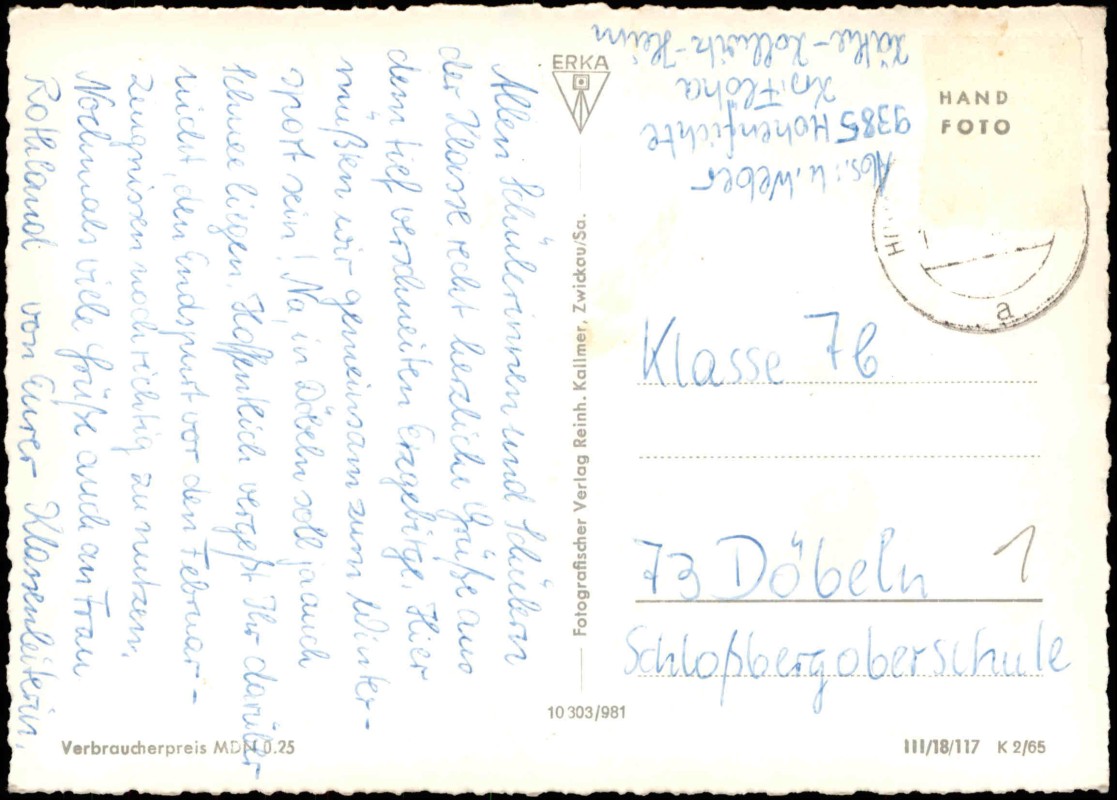 Allen Schülerinnen und Schülern
der Klasse recht herzliche Grüße aus
dem tief verschneiten Erzgebirge. Hier
müßen wir gemeinsam zum Winter-
sport sein! Na, in Döbeln soll ja auch
Schnee liegen. Hoffentlich vergeßt Ihr darüber
nicht, den Endspurt vor den Februar-
zeugnissen noch richtig zu nutzen.
Nochmals viele Grüße auch an Frau
Rothland von Eurer Klassenleiterin.
ERKA
Fotografischer Verlag Reinh. Kallmer, Zwickau/Sa.
Abs.: U. Weber
9385 Hohenfichte
Kr. Flöha
Käthe-Kollwitz-Heim
HAND
FOTO
a
Klasse 7b
73 Döbeln 1
Schloßbergoberschule
10 303/981
Verbraucherpreis MDN 0.25
III/18/117 K 2/65